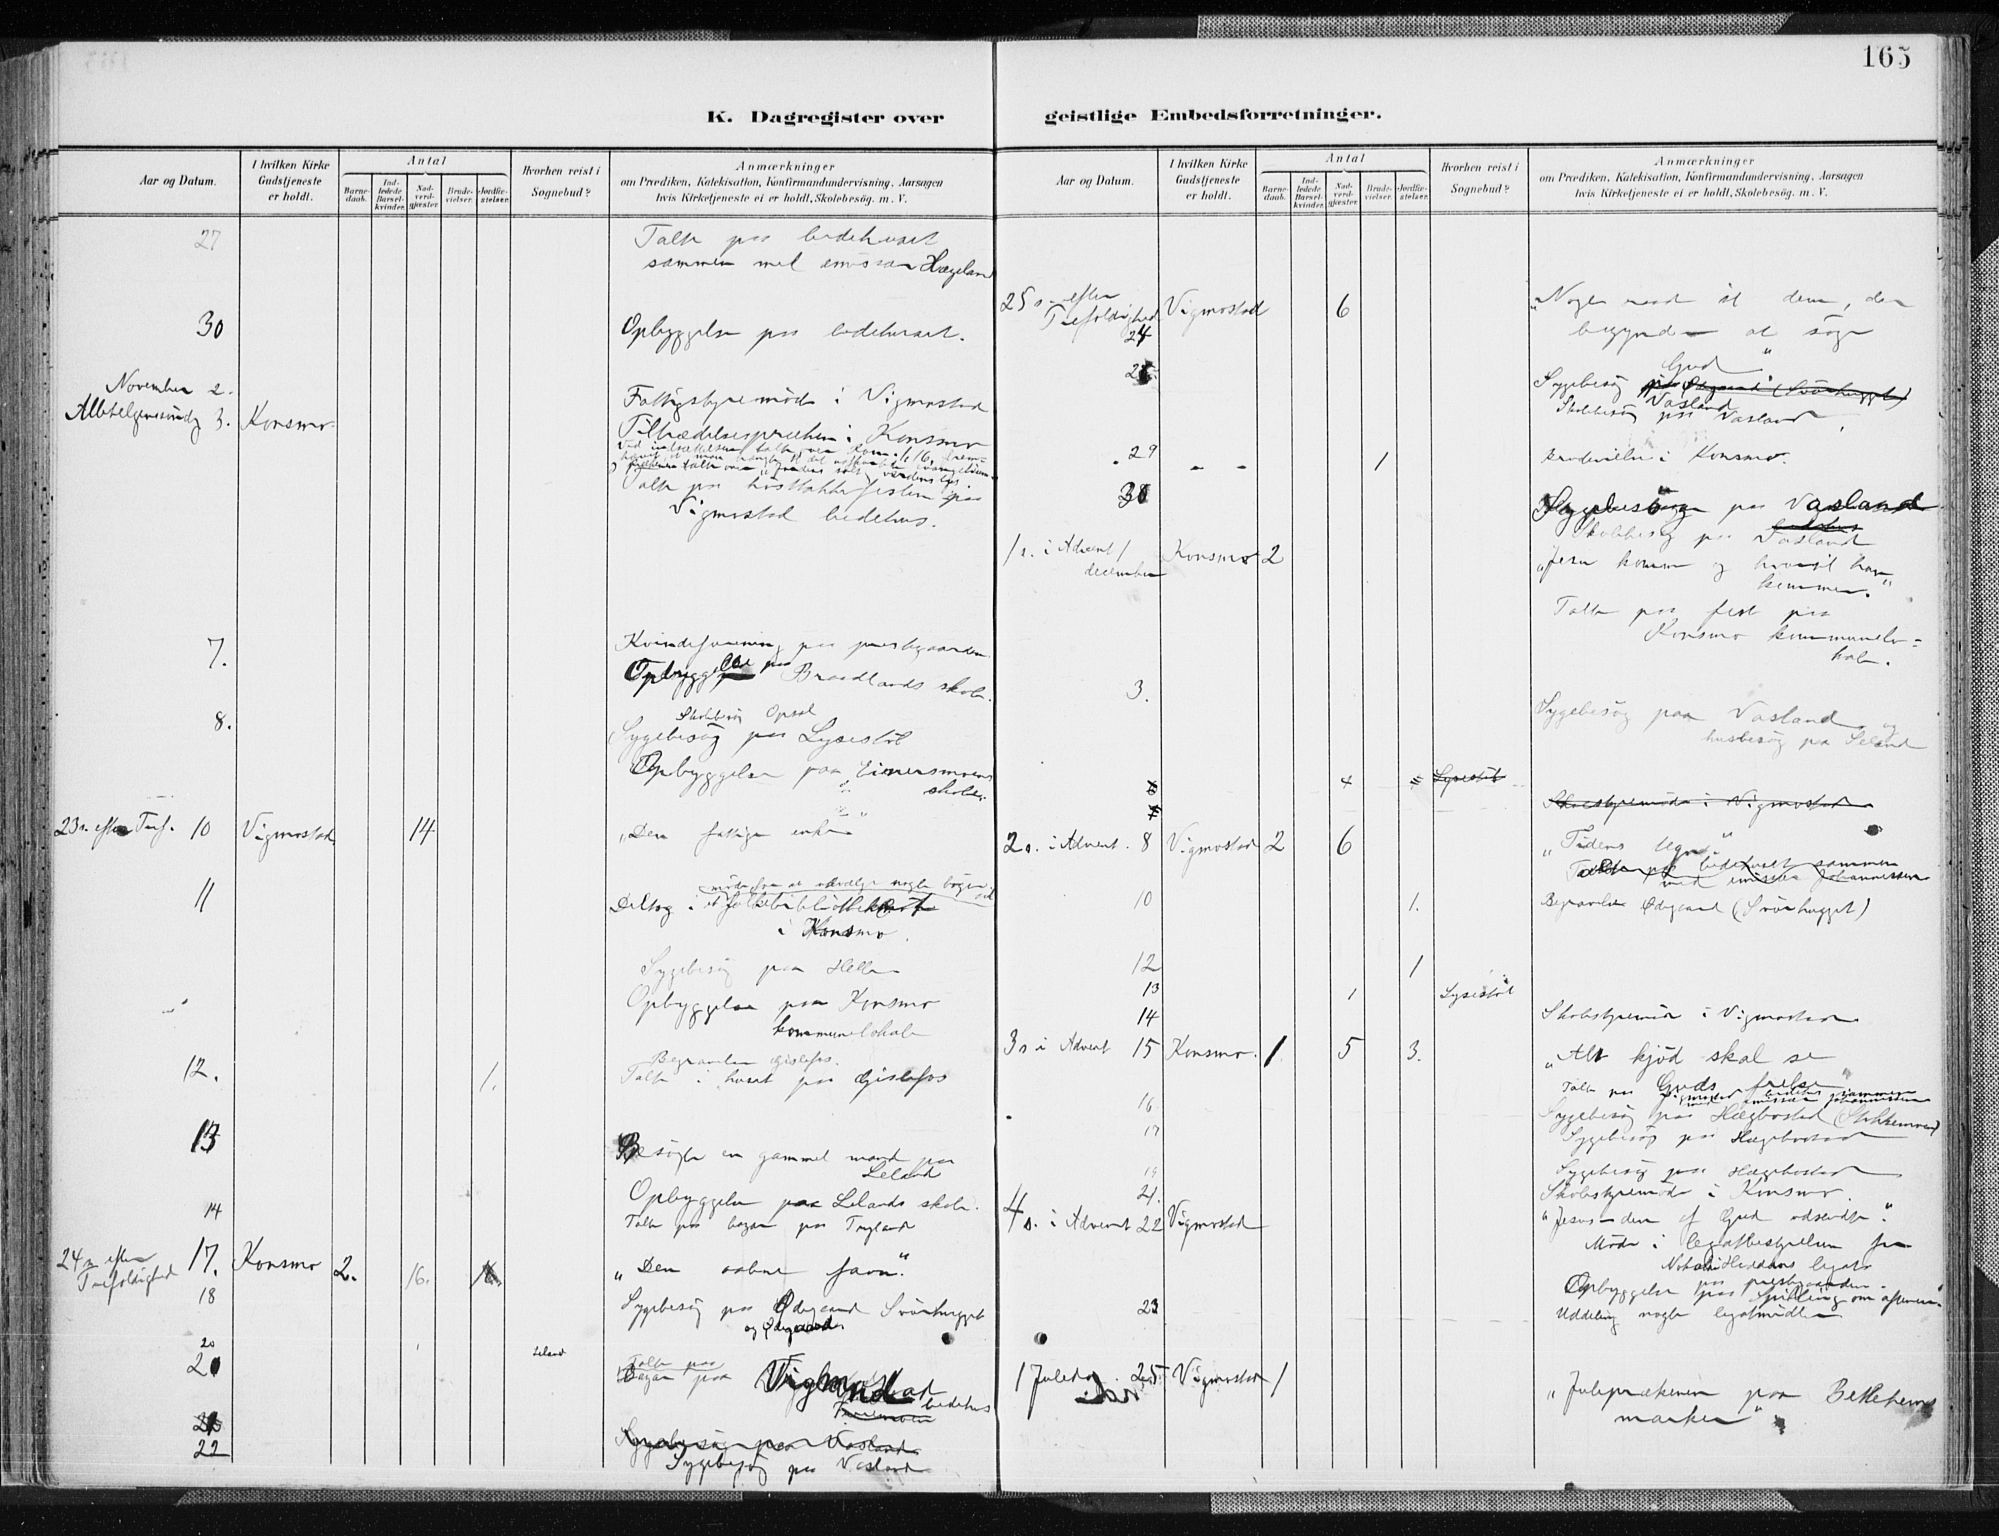 165
K. Dagregister over geistlige Embedsforretninger.
Aar og Datum.
I hvilken Kirke Gudstjeneste er holdt.
Antal
Barnedaab.
Indledede Barselkvinder.
Nadverdgjæster.
Brudevielser.
Jordfæstelser.
Hvorhen reist i Sognebud?
Anmærkninger
om Prædiken, Katekisation, Konfirmandundervisning, Aarsagen
hvis Kirketjeneste ei er holdt, Skolebesög. m. V.
27 Talte paa bedehuset
sammen med emissær Hægeland
30 Opbyggelse paa bedehuset.
November 2. Fattigstyremöde i Vigmostad
Allehelgensöndg 3. Konsmo Tiltrædelsespræken i Konsmo
Talte paa høsttakkefesten paa
Vigmostad bedehus.
7. Kvindeforening paa prestegaarden.
Opbyggelse paa Brædlands skole.
8. Skolebesög Opsal
Sygebesög paa Lysestöl
Opbyggelse paa Eimersmoens
skole.
23 s. efter Tref. 10 Vigmostad 14 "Den fattige enke"
11 møde for at udvælge nogle böger
Deltog i folkebibliotheket
i Konsmo.
Sygebesög paa Helle
Opbyggelse paa Konsmo
kommunelokale
12. 1. Begravelse Gislefos.
Talte i huset paa Gislefos
13 Besøgte en gammel mand paa
Leland
Opbyggelse paa Lelands skole.
14 Talte paa bazar paa Trygland
24 s. efter Trefoldighed 17. Konsmo 2. 16. "Den aabne favn."
18 Sygebesög paa Ødegaard Svörhugget
og Ødegaard
20 Leland
21 Talte paa
Bazar paa Vigmostad bedehus
22 Sygebesög paa Vasland
Sygebesög paa Vasland
Aar og Datum.
I hvilken Kirke Gudstjeneste er holdt.
Antal
Barnedaab.
Indledede Barselkvinder.
Nadverdgjæster.
Brudevielser.
Jordfæstelser.
Hvorhen reist i Sognebud?
Anmærkninger
om Prædiken, Katekisation, Konfirmandundervisning, Aarsagen
hvis Kirketjeneste ei er holdt, Skolebesög. m. V.
25 s. efter Trefoldighed 24 Vigmostad 6 "Nogle raad til dem, der
begynder at söge
Gud"
Sygebesög paa Ødegaard (Svörhugget)
Vasland
Skolebesög paa Vasland.
29 " " 1 brudevielse i Konsmo.
30 Sygebesög paa Vasland
Skolebesög paa Vasland
1 s. i Advent 1 december Konsmo 2 "Jesu komme og hvortil han
kommer."
Talte paa fest paa
Konsmo kommunelo-
kale.
3. Sygebesög paa Vasland og
husbesög paa Seland
Lysestöl
Skolestyremöde i Vigmostad
2 s. i Advent. 8 Vigmostad 2 6 "Tidens tegn"
Talte paa bedehuset sammen
med emissær Johannessen
10 1. Begravelse Ødegaard (Svörhugget)
12 1
13 1 Lysestöl
14 Skolestyremöde i Vigmostad
3 s. i Advent 15 Konsmo. 1. 5 3. "Alt kjöd skal se
Guds frelse"
Talte paa Vigmostad bedehus sammen
med emissær Johannessen
16 Sygebesög paa Hægbostad (Stokkemoen)
17 Sygebesög paa Hægebostad
19 Sygebesög paa Hægebostad
21. Skolestyremöde i Konsmo.
4 s. i Advent 22 Vigmostad "Jesus - den af Gud udsendte."
Möde i legatbestyrelsen for
legat
paa prestegaarden.
Opbyggelse paa Spilling om aftenen.
23 Uddeling nogle legatmidler
1 Juledag 25 Vigmostad 1 "Juleprækenen paa Betlehems
marker"